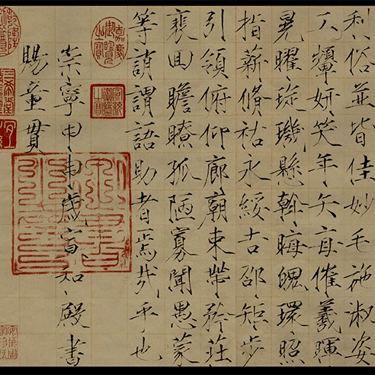 利俗並皆佳妙毛施淑姿
工顰妍笑年矢每催羲暉
晃曜璇璣懸斡晦魄環照
指薪脩祜永綏吉邵矩步
引領俯仰廊廟束帶矜莊
裵回瞻眺孤陋寡聞愚蒙
等誚謂語助者焉哉乎也
崇寧甲申歲宣和殿書
賜童貫